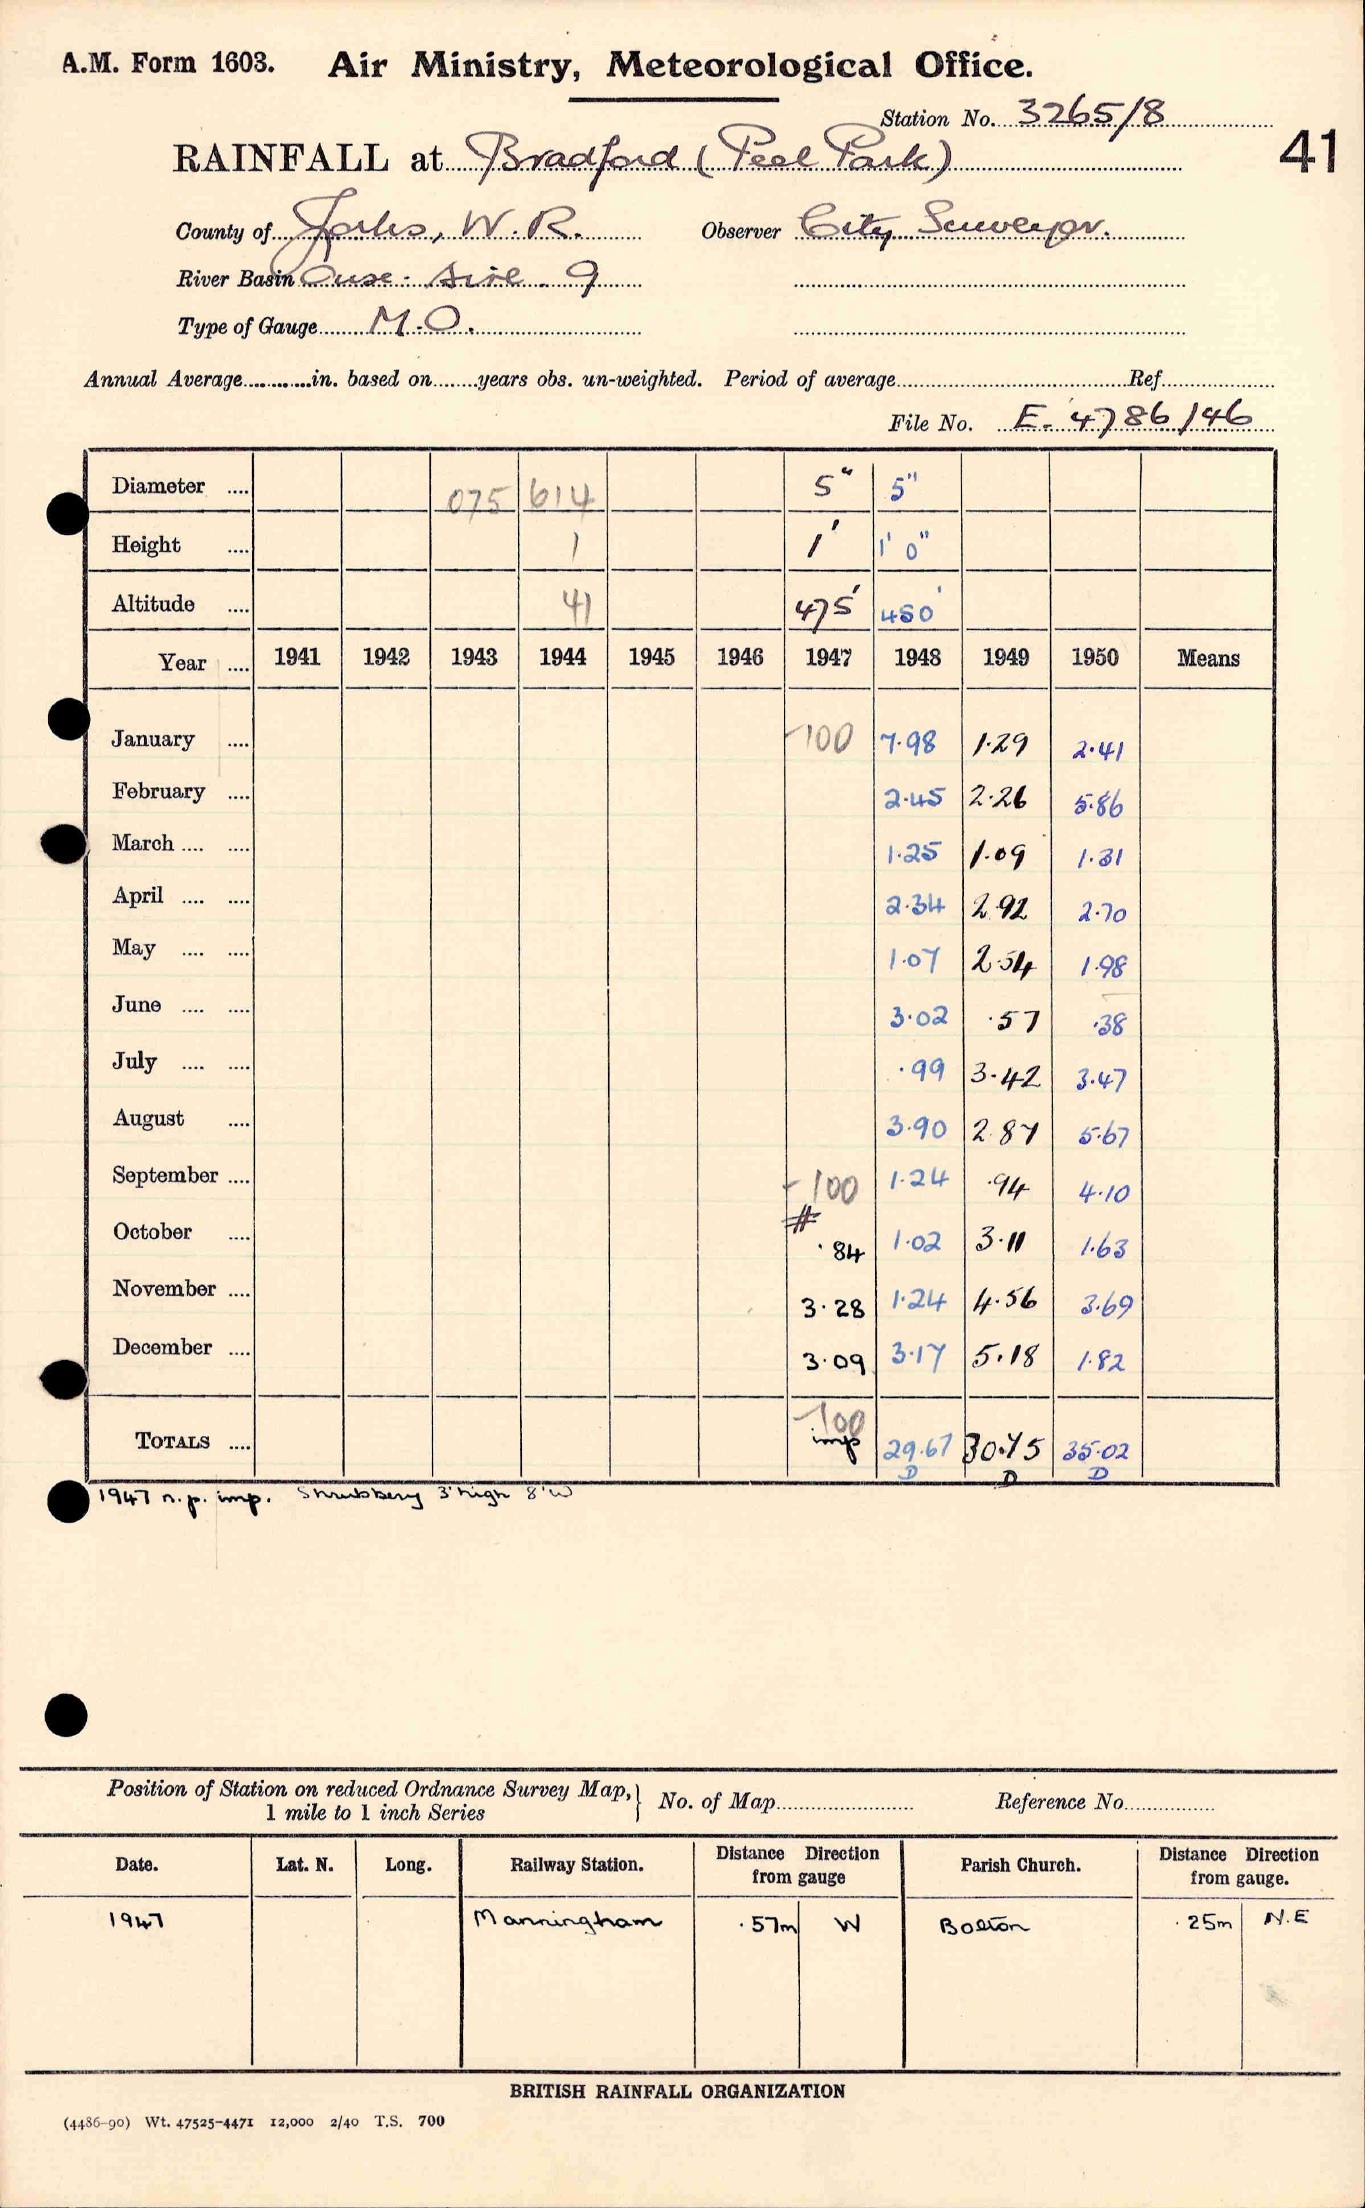 A.M. Form 1603. Air Ministry, Meteorological Office.
Station No. 3265/8
41
RAINFALL at Bradford (Peel Park)
County of Yorks, W.R. Observer City Surveyor.
River Basin Ouse - Aire . 9
Type of Gauge M.O.
Annual Average............in. based on........years obs. un-weighted. Period of average.............Ref.............
File No. E. 4786/46
Diameter .... 075 614 5" 5"
Height .... 1 1' 1' 0"
Altitude .... 41 475' 450'
Year .... 1941 1942 1943 1944 1945 1946 1947 1948 1949 1950 Means
January .... -100 7.98 1.29 2.41
February .... 2.45 2.26 5.86
March .... .... 1.25 1.09 1.31
April .... .... 2.34 2.92 2.70
May .... .... 1.07 2.54 1.98
June .... .... 3.02 .57 .38
July .... .... .99 3.42 3.47
August .... 3.90 2.87 5.67
September .... -100 1.24 .94 4.10
October .... # .84 1.02 3.11 1.63
November .... 3.28 1.24 4.56 3.69
December .... 3.09 3.17 5.18 1.82
-100
TOTALS .... imp 29.67 30.75 35.02
D D D
1947 n.p. imp. Shrubbery 3' high 8' W
Position of Station on reduced Ordnance Survey Map, 1 mile to 1 inch Series } No. of Map............ Reference No............
Date. Lat. N. Long. Railway Station. Distance Direction from gauge Parish Church. Distance Direction from gauge.
1947 Manningham .57m W Bolton .25m N.E
BRITISH RAINFALL ORGANIZATION
(4486-90) Wt. 47525-4471 12,000 2/40 T.S. 700